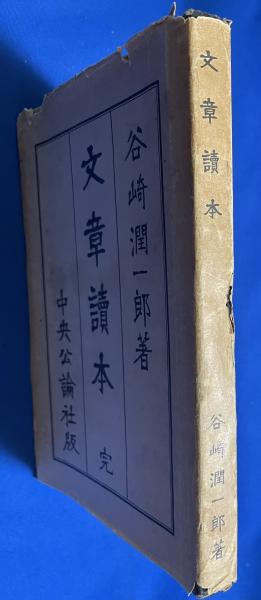 谷崎潤一郎著
文章讀本 完
中央公論社版
文章讀本
谷崎潤一郎著